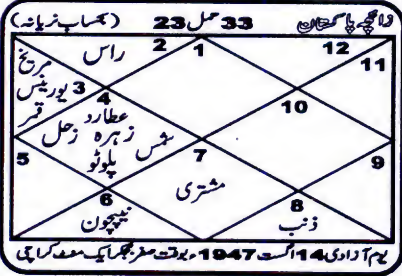 زائچہ پاکستان 33 حمل 23 (بحساب نریانہ)
1
2
راس
12
11
مریخ
3 یورینس
قمر
4
عطارد
زہرہ
زحل
شمس
پلوٹو
10
5
7
مشتری
9
6
نیپچون
8
ذنب
یوم آزادی 14 اگست 1947ء بوقت صفر بجکر ایک منٹ کراچی